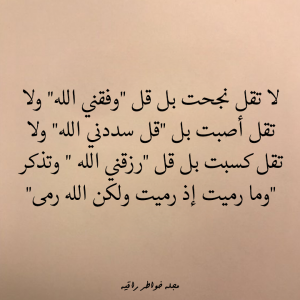 لا تقل نجحت بل قل "وفقني الله" ولا
تقل أصبت بل "قل سددني الله" ولا
تقل كسبت بل قل "رزقني الله " وتذكر
"وما رميت إذ رميت ولكن الله رمى"
مجله خواطر راقيه